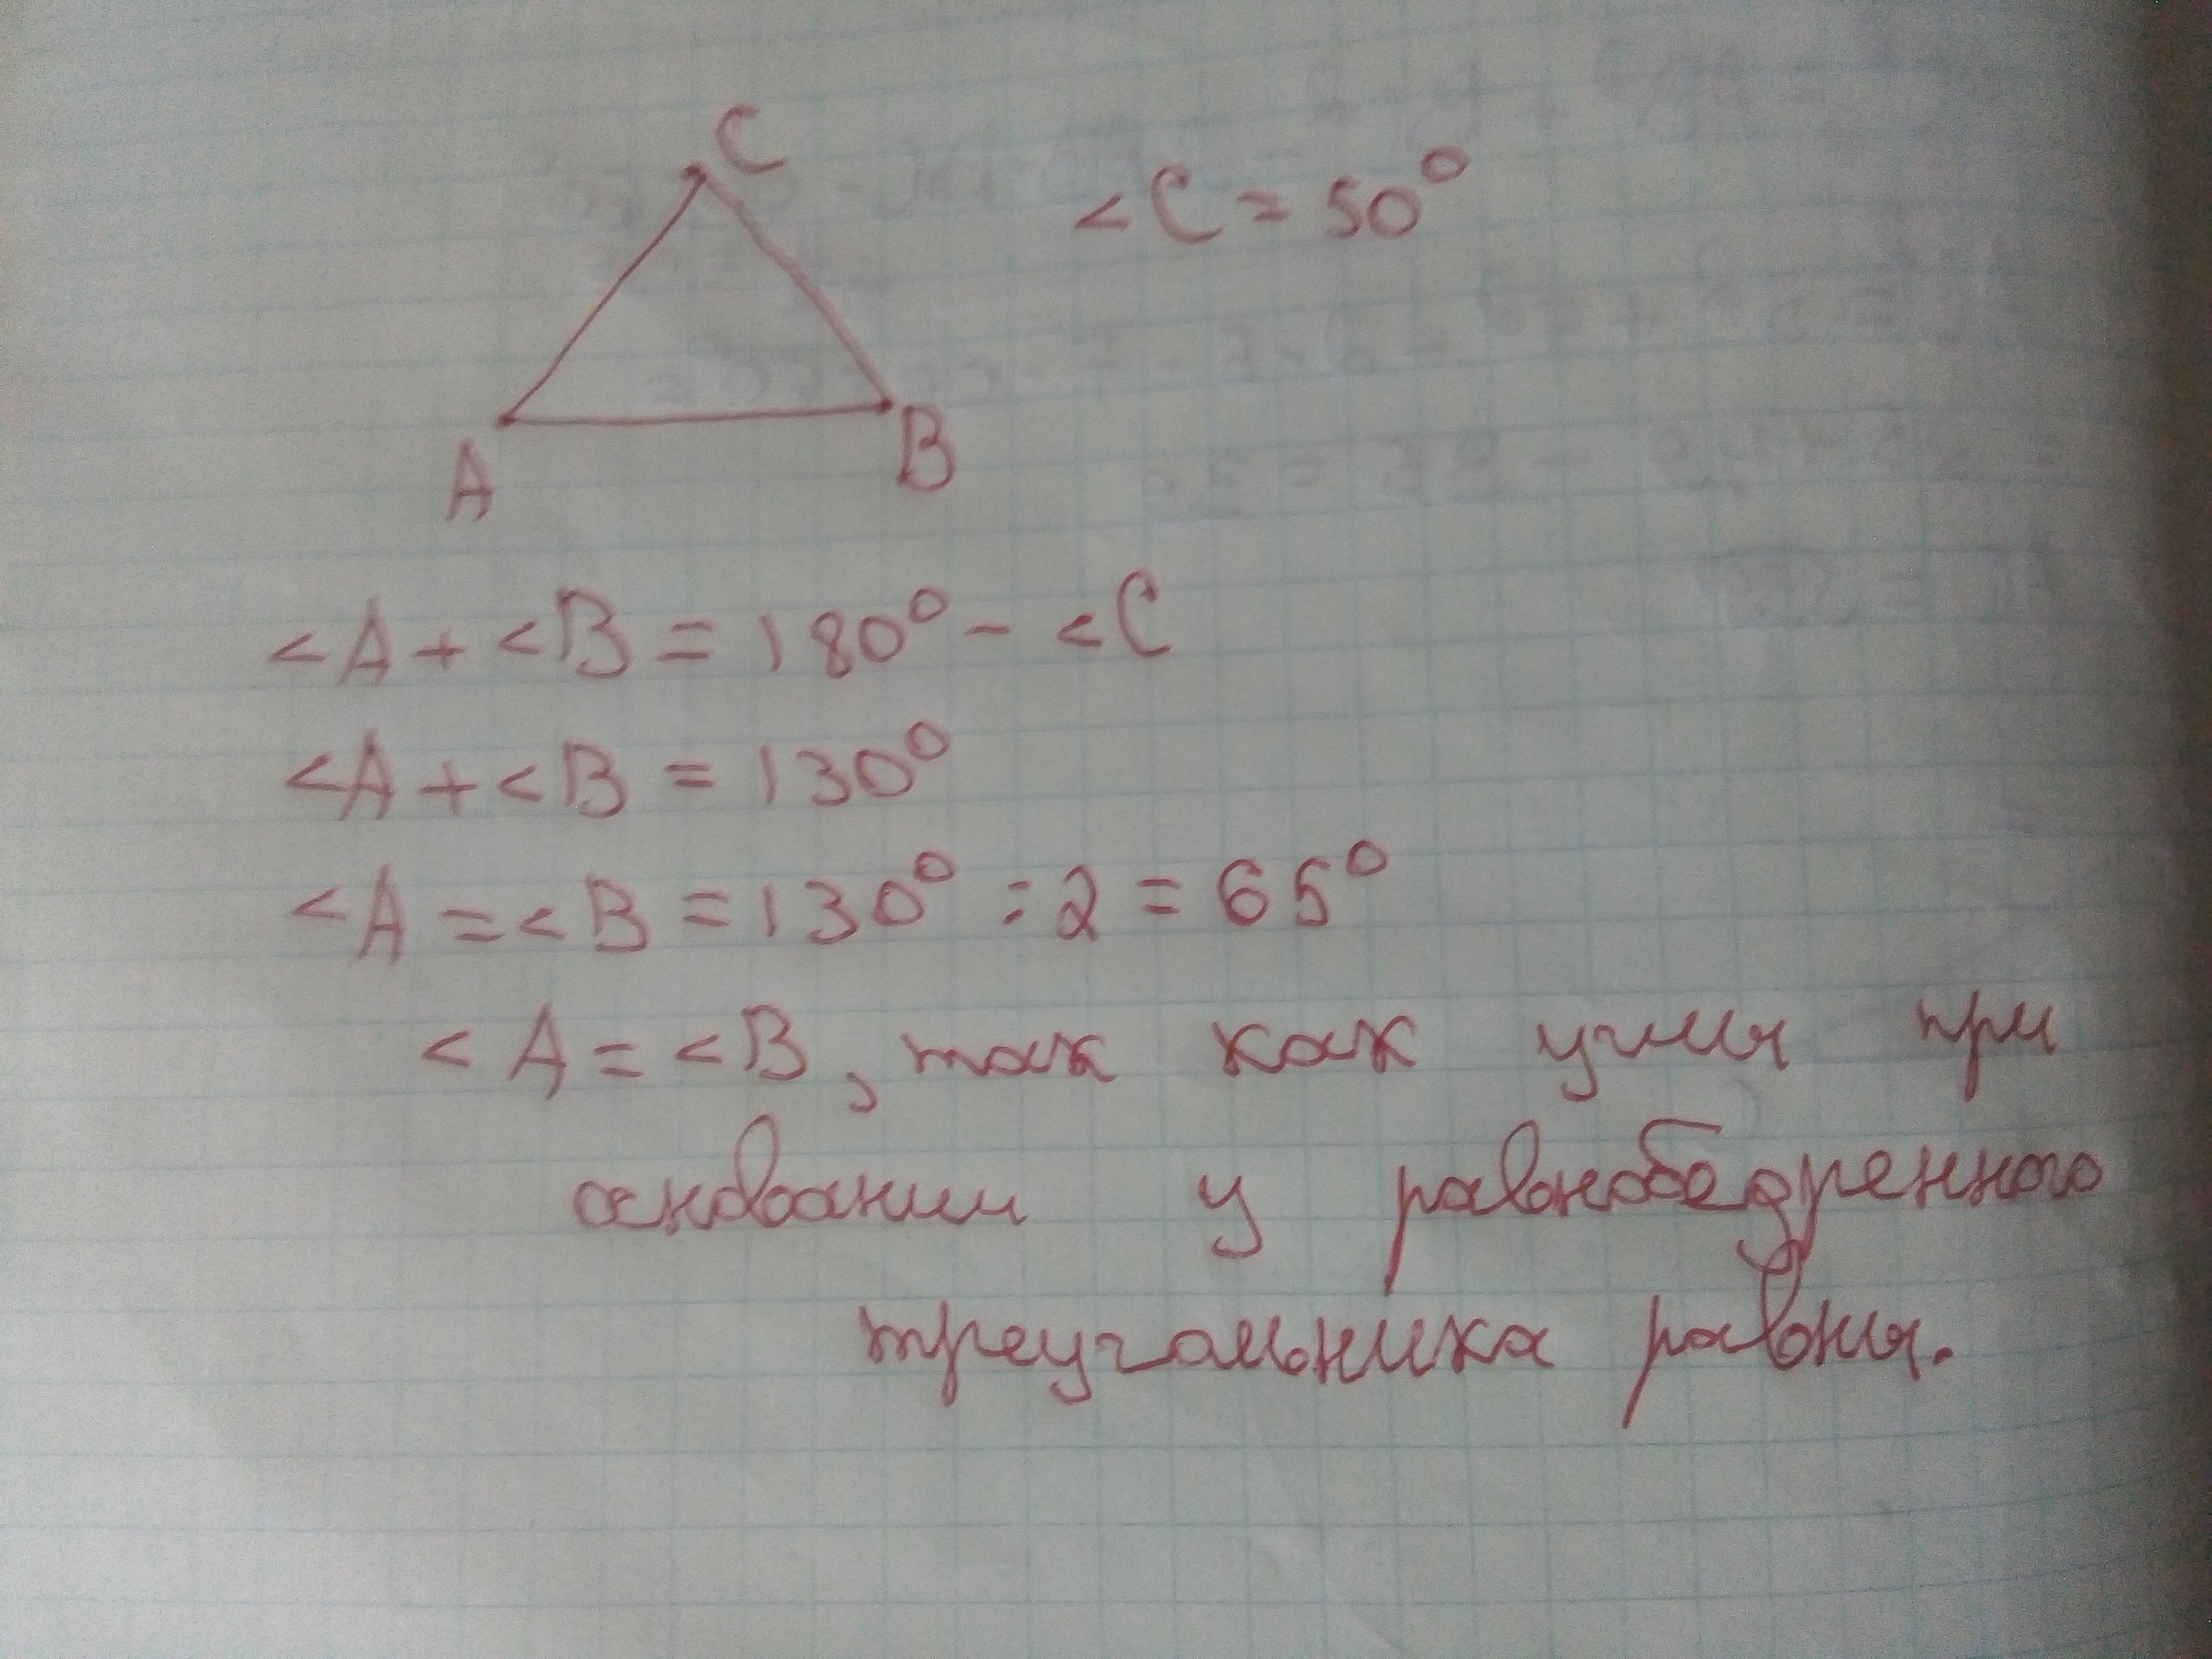 C
<C = 50°
A
B
<A + <B = 180° - <C
<A + <B = 130°
<A = <B = 130° : 2 = 65°
<A = <B, так как углы при
основании у равнобедренного
треугольника равны.